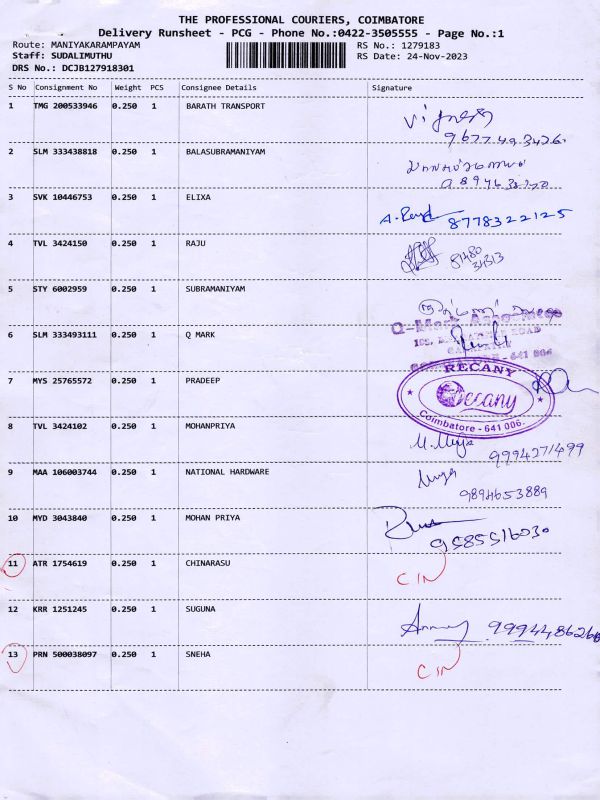 THE PROFESSIONAL COURIERS, COIMBATORE
Delivery Runsheet - PCG - Phone No.:0422-3505555 - Page No.:1
Route: MANIYAKARAMPAYAM RS No.: 1279183
Staff: SUDALIMUTHU RS Date: 24-Nov-2023
DRS No.: DCJB127918301
S No Consignment No Weight PCS Consignee Details Signature
1 TMG 200533946 0.250 1 BARATH TRANSPORT
9677493426
2 SLM 333438818 0.250 1 BALASUBRAMANIYAM
3 SVK 10446753 0.250 1 ELIXA
8778322125
4 TVL 3424150 0.250 1 RAJU
81480
34313
5 STY 6002959 0.250 1 SUBRAMANIYAM
Q-Mark
6 SLM 333493111 0.250 1 Q MARK
641 006
RECANY
7 MYS 25765572 0.250 1 PRADEEP
Recany
Coimbatore - 641 006.
8 TVL 3424102 0.250 1 MOHANPRIYA
9994271499
9 MAA 106003744 0.250 1 NATIONAL HARDWARE
9894653889
10 MYD 3043840 0.250 1 MOHAN PRIYA
9585516030
11 ATR 1754619 0.250 1 CHINARASU
CIN
12 KRR 1251245 0.250 1 SUGUNA
13 PRN 500038097 0.250 1 SNEHA
CIN